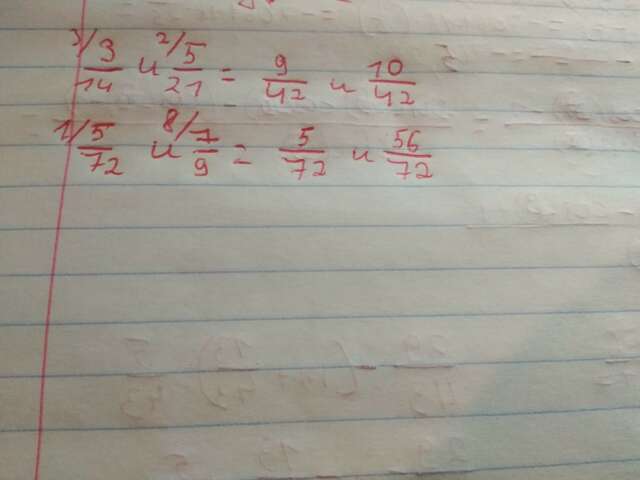 3/ 3/14 и 2/ 5/21 = 9/42 и 10/42
1/ 5/72 и 8/ 7/9 = 5/72 и 56/72